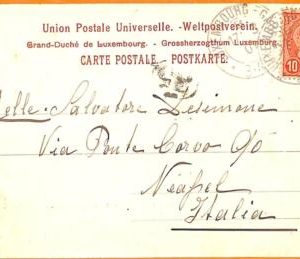 Union Postale Universelle. -Weltpostverein.
Grand-Duché de Luxembourg. - Grossherzogthum Luxemburg.
CARTE POSTALE. - POSTKARTE.
10
Melle Salvatore Desimone
Via Ponte Corvo 90
Neapel
Italia